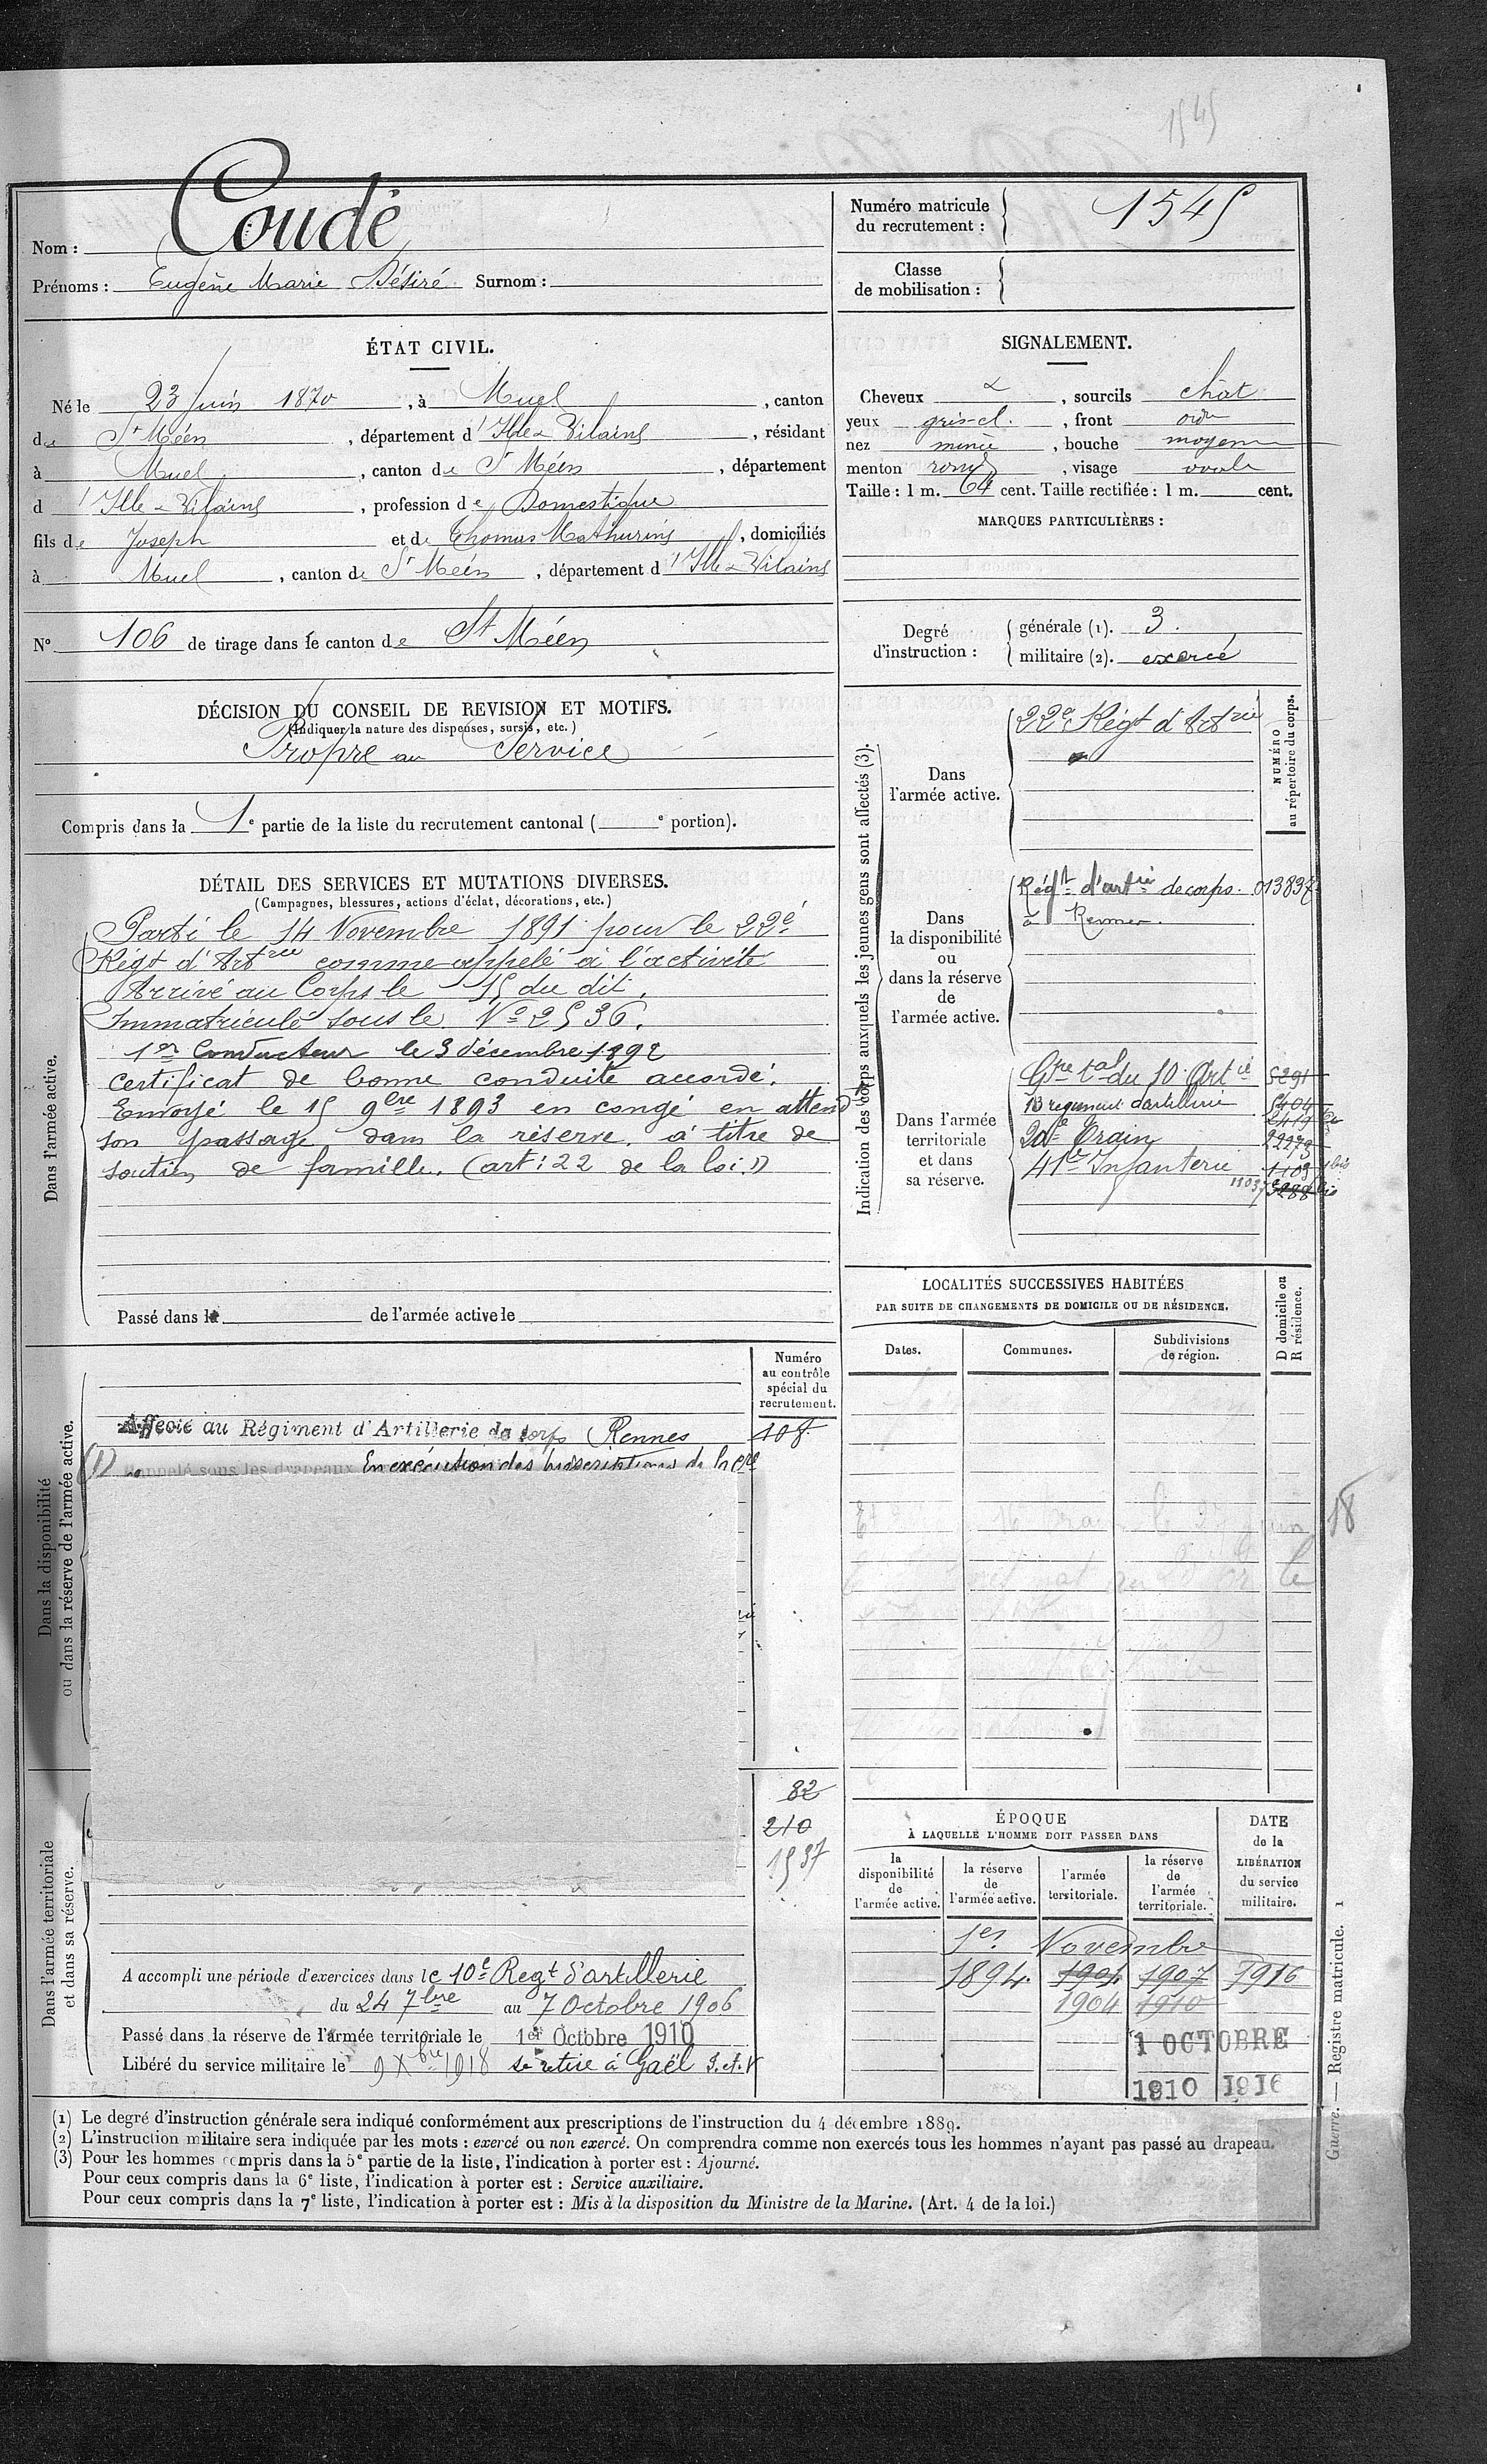 1545
Nom : Coudé
Prénoms : Eugène Marie Désiré Surnom :
Numéro matricule
du recrutement :
1545
Classe
de mobilisation :
ÉTAT CIVIL.
Né le 23 Juin 1870, à Muel, canton
de St Méen, département d'Ille & Vilaine, résidant
à Muel, canton de St Méen, département
d'Ille & Vilaine, profession de Domestique
fils de Joseph et de Thomas Mathurine, domiciliés
à Muel, canton de St Méen, département d'Ille & Vilaine
SIGNALEMENT.
Cheveux &, sourcils chât
yeux gris-cl., front ordre
nez mince, bouche moyenne
menton rond, visage ovale
Taille : 1 m. 64 cent. Taille rectifiée : 1 m. cent.
MARQUES PARTICULIÈRES :
N° 106 de tirage dans le canton de St Méen
Degré
d'instruction :
générale (1). 3.
militaire (2). exercé
DÉCISION DU CONSEIL DE REVISION ET MOTIFS.
(Indiquer la nature des dispenses, sursis, etc.)
Propre au Service
Compris dans la 1e partie de la liste du recrutement cantonal ( e portion).
DÉTAIL DES SERVICES ET MUTATIONS DIVERSES.
(Campagnes, blessures, actions d'éclat, décorations, etc.)
Dans l'armée active.
Parti le 14 Novembre 1891 pour le 22e
Régt d'Artrie comme appelé à l'activité
Arrivé au Corps le 15 du dit.
Immatriculé sous le N° 2536.
1er Conducteur le 3 décembre 1892
Certificat de bonne conduite accordé.
Envoyé le 15 9bre 1893 en congé en attendt
son passage dans la réserve, à titre de
soutien de famille. (art: 22 de la loi)
Passé dans la de l'armée active le
Indication des corps auxquels les jeunes gens sont affectés (3).
NUMÉRO
au répertoire du corps.
Dans
l'armée active.
22e Régt d'Artrie
Dans
la disponibilité
ou
dans la réserve
de
l'armée active.
Régt d'artie de corps. 013837
à Rennes.
Dans l'armée
territoriale
et dans
sa réserve.
Gpe tal du 10. Artie 5291
13 regiment d'artillerie 5404
2419
20e Train 22273
41e Infanterie 1109 bis
11037 3288 bis
LOCALITÉS SUCCESSIVES HABITÉES
PAR SUITE DE CHANGEMENTS DE DOMICILE OU DE RÉSIDENCE.
Dates. Communes. Subdivisions
de région.
D domicile ou
R résidence.
Numéro
au contrôle
spécial du
recrutement.
Dans la disponibilité
ou dans la réserve de l'armée active.
Affecté au Régiment d'Artillerie de corps Rennes 108
(1) Rappelé sous les drapeaux En exécution des prescriptions de la Cre
18
82
210
1537
Dans l'armée territoriale
et dans sa réserve.
A accompli une période d'exercices dans le 10e Regt d'artillerie
du 24 7bre au 7 Octobre 1906
Passé dans la réserve de l'armée territoriale le 1er Octobre 1910
Libéré du service militaire le 9 Xbre 1918 se retire à Gaël I. et V
ÉPOQUE
À LAQUELLE L'HOMME DOIT PASSER DANS
DATE
de la
LIBÉRATION
du service
militaire.
la
disponibilité
de
l'armée active.
la réserve
de
l'armée active.
l'armée
territoriale.
la réserve
de
l'armée
territoriale.
1er Novembre
1894. 1901 1907 1916
1904 1910
1 OCTOBRE
1910 1916
Guerre. — Registre matricule. 1
(1) Le degré d'instruction générale sera indiqué conformément aux prescriptions de l'instruction du 4 décembre 1889.
(2) L'instruction militaire sera indiquée par les mots : exercé ou non exercé. On comprendra comme non exercés tous les hommes n'ayant pas passé au drapeau.
(3) Pour les hommes compris dans la 5e partie de la liste, l'indication à porter est : Ajourné.
Pour ceux compris dans la 6e liste, l'indication à porter est : Service auxiliaire.
Pour ceux compris dans la 7e liste, l'indication à porter est : Mis à la disposition du Ministre de la Marine. (Art. 4 de la loi.)